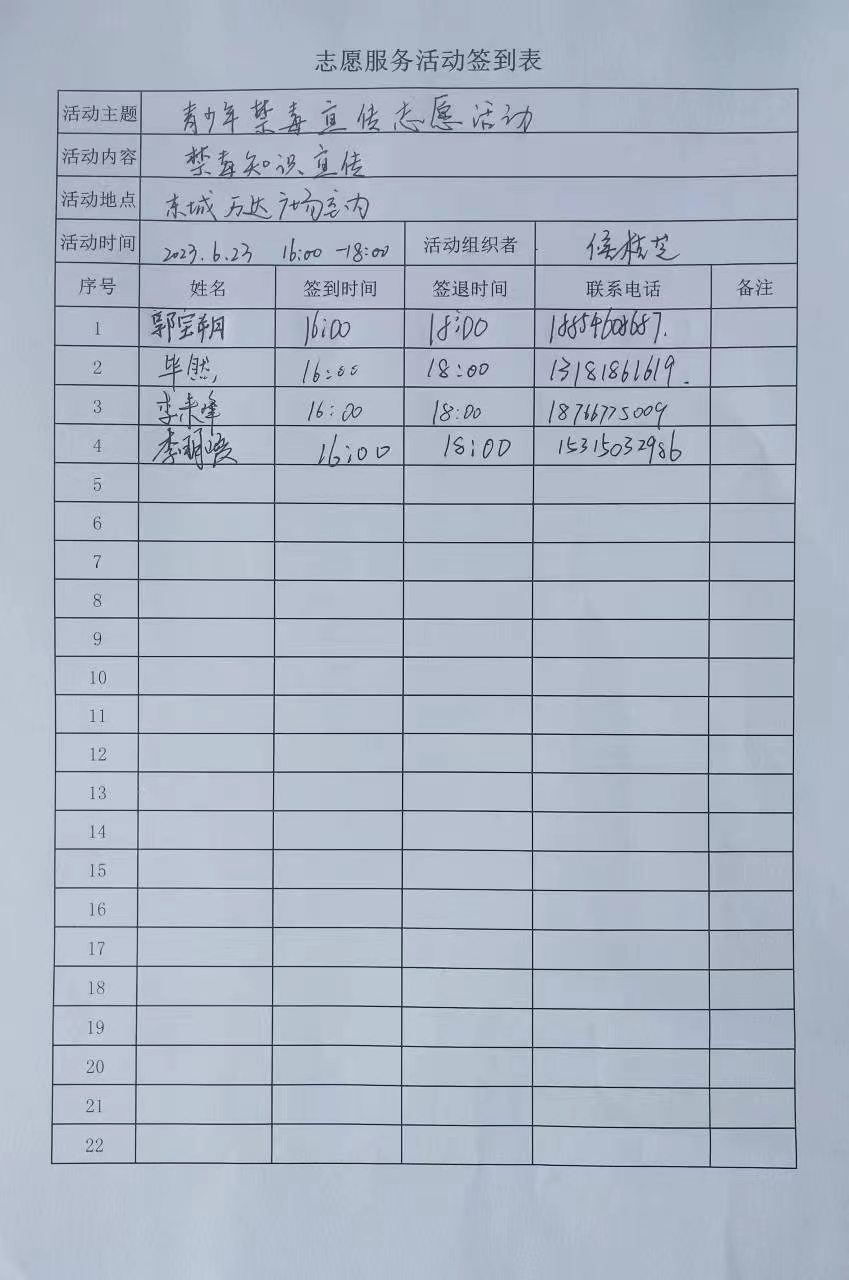 志愿服务活动签到表
活动主题 青少年禁毒宣传志愿活动
活动内容 禁毒知识宣传
活动地点 东城万达广场室内
活动时间 2023.6.23 16:00-18:00 活动组织者 侯桂芝
序号 姓名 签到时间 签退时间 联系电话 备注
1 郭宝明 16:00 18:00 18854608687.
2 毕然 16:00 18:00 13181861619.
3 李来峰 16:00 18:00 18766775009
4 李 16:00 18:00 15315032986
5
6
7
8
9
10
11
12
13
14
15
16
17
18
19
20
21
22